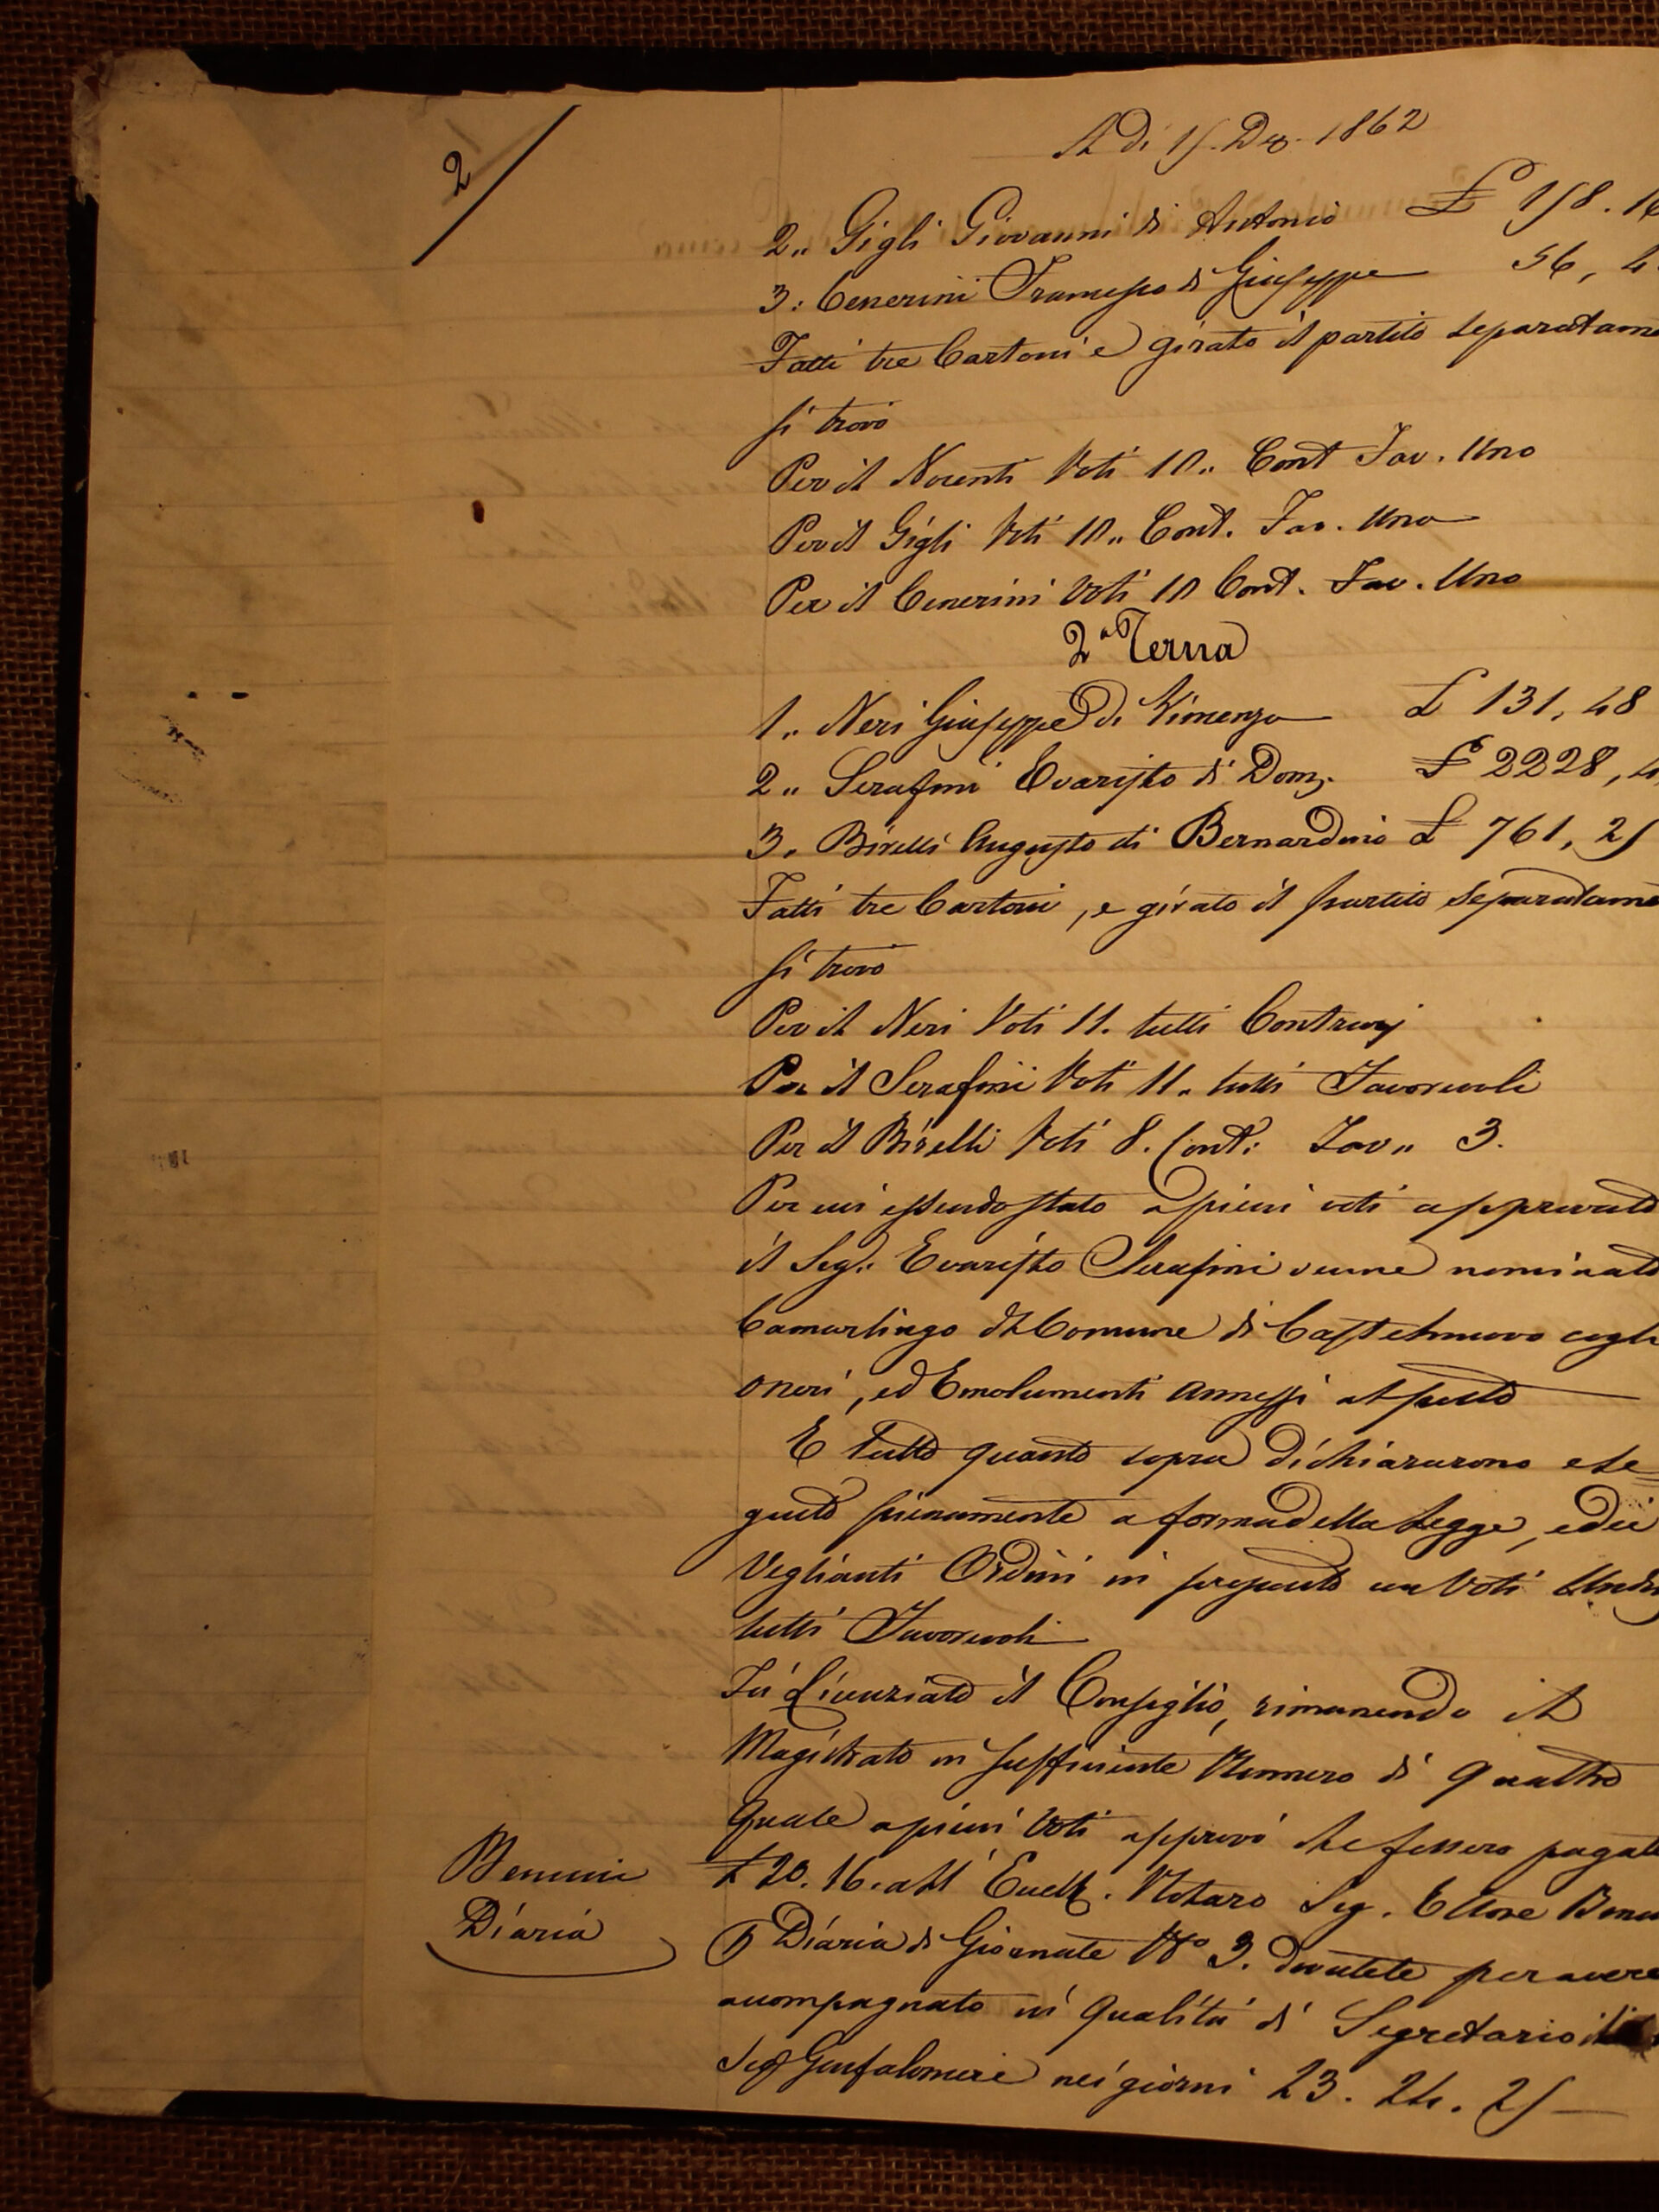 2
A Di 15. Dec. 1862
2,, Gigli Giovanni di Antonio £ 158. 16
3: Cenerini Francesco di Giuseppe 56, 4
Fatti tre Cartoni e girato il partito separatame
si trovò
Per il Nocenti Voti 10,, Cont Fav. Uno
Per il Gigli Voti 10,, Cont. Fav. Uno
Per il Cenerini Voti 10 Cont. Fav. Uno
2ª Terna
1,, Neri Giuseppe di Vincenzo £ 131, 48
2,, Serafini Evaristo di Dom. £ 2228, 4
3. Birelli Augusto di Bernardino £ 761, 25
Fatti tre Cartoni, e girato il partito separatame
si trovò
Per il Neri Voti 11. tutti Contrarj
Per il Serafini Voti 11,, tutti Favorevoli
Per il Birelli Voti 8. Cont: Fav,, 3.
Per cui essendo stato a pieni voti approvato
il Sig.r Evaristo Serafini venne nominato
Camarlingo del Comune di Castelnuovo cogli
oneri, ed Emolumenti annessi al posto
E Tutto quanto sopra dichiararono ese=
guito pienamente a forma della Legge, e dei
Veglianti Ordini in proposito con Voti Undi
tutti Favorevoli
Fù licenziato il Consiglio, rimanendo il
Magistrato in sufficiente Numero di quattro
quale a pieni Voti approvò che fossero pagate
£ 20. 16. all' Eccell. Notaro Sig. Ettore Benci
Diaria
P Diaria di Giornate N° 3. dovutele per avere
accompagnato in qualità di Segretario il
Sig Gonfaloniere nei giorni 23. 24. 25